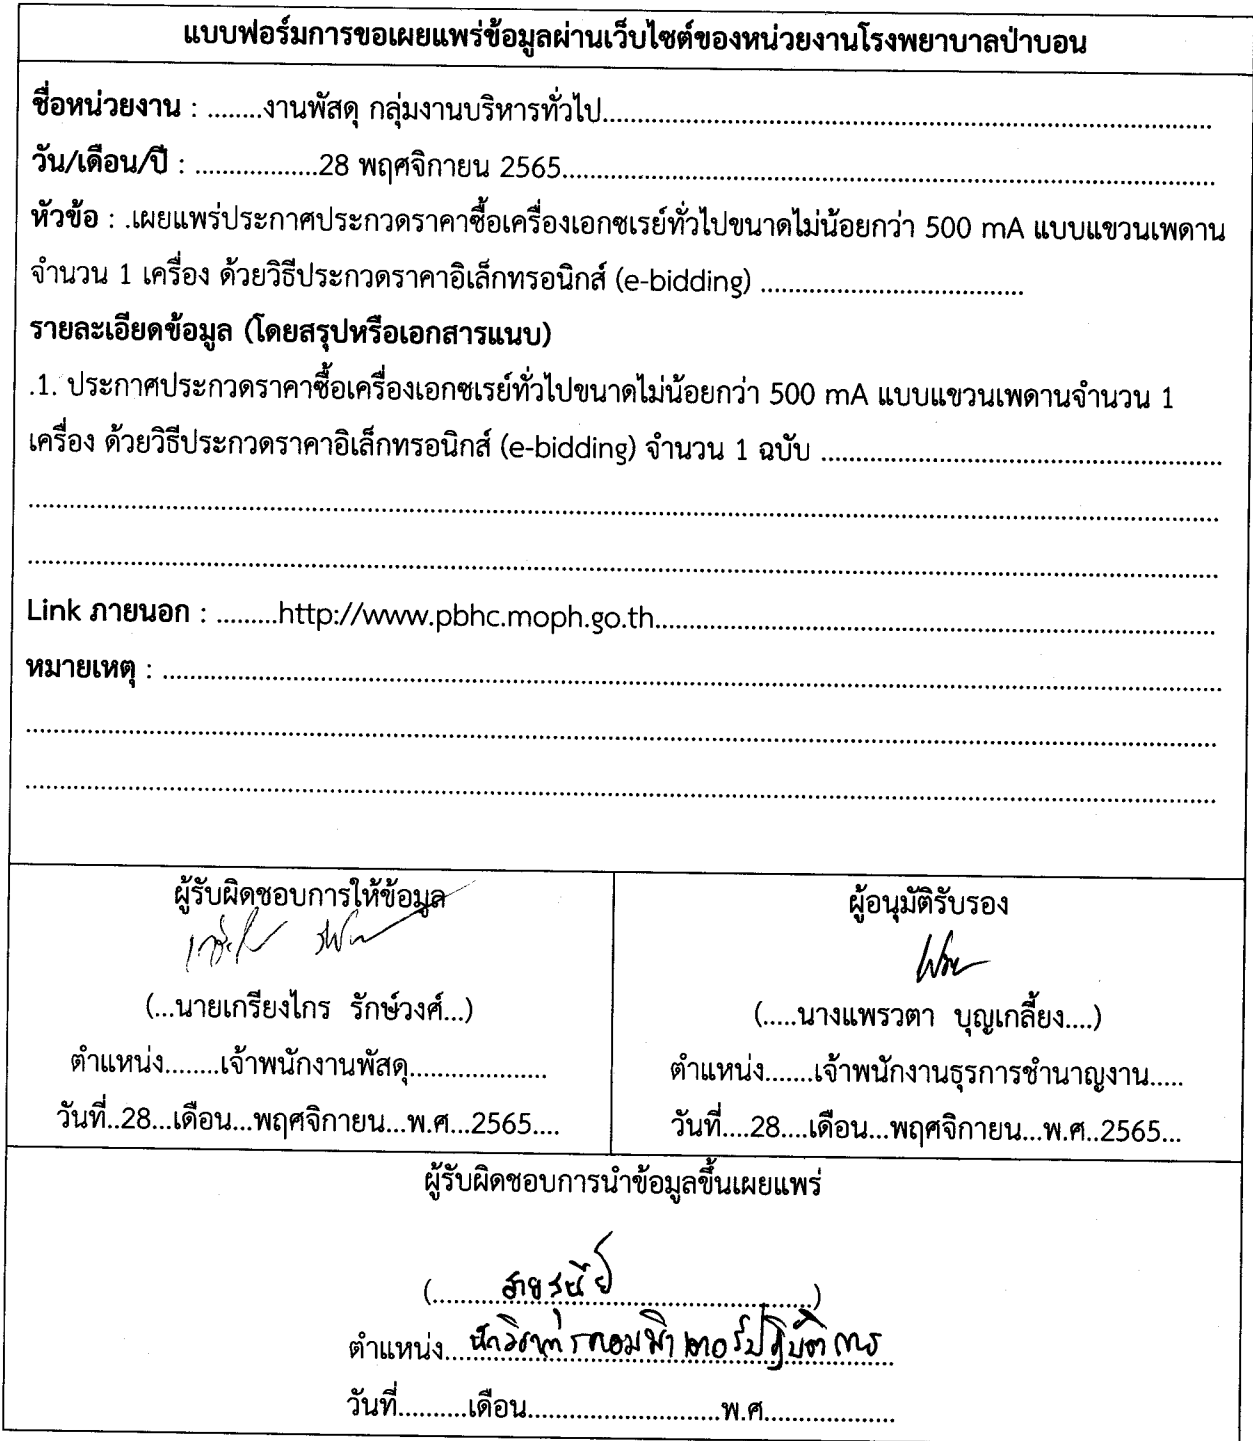 แบบฟอร์มการขอเผยแพร่ข้อมูลผ่านเว็บไซต์ของหน่วยงานโรงพยาบาลป่าบอน
ชื่อหน่วยงาน : ........งานพัสดุ กลุ่มงานบริหารทั่วไป........................................................................................
วัน/เดือน/ปี : ..................28 พฤศจิกายน 2565................................................................................................
หัวข้อ : .เผยแพร่ประกาศประกวดราคาซื้อเครื่องเอกซเรย์ทั่วไปขนาดไม่น้อยกว่า 500 mA แบบแขวนเพดาน
จำนวน 1 เครื่อง ด้วยวิธีประกวดราคาอิเล็กทรอนิกส์ (e-bidding) ......................................
รายละเอียดข้อมูล (โดยสรุปหรือเอกสารแนบ)
.1. ประกาศประกวดราคาซื้อเครื่องเอกซเรย์ทั่วไปขนาดไม่น้อยกว่า 500 mA แบบแขวนเพดานจำนวน 1
เครื่อง ด้วยวิธีประกวดราคาอิเล็กทรอนิกส์ (e-bidding) จำนวน 1 ฉบับ ..........................................................
Link ภายนอก : .........http://www.pbhc.moph.go.th..................................................................................
หมายเหตุ : ..........................................................................................................................................................
ผู้รับผิดชอบการให้ข้อมูล
(...นายเกรียงไกร รักษ์วงศ์...)
ตำแหน่ง........เจ้าพนักงานพัสดุ....................
วันที่..28...เดือน...พฤศจิกายน...พ.ศ...2565....
ผู้อนุมัติรับรอง
(.....นางแพรวตา บุญเกลี้ยง....)
ตำแหน่ง.......เจ้าพนักงานธุรการชำนาญงาน.....
วันที่....28....เดือน...พฤศจิกายน...พ.ศ..2565...
ผู้รับผิดชอบการนำข้อมูลขึ้นเผยแพร่
ตำแหน่ง...นักวิชาการคอมพิวเตอร์ปฏิบัติการ
วันที่..........เดือน............................พ.ศ...................